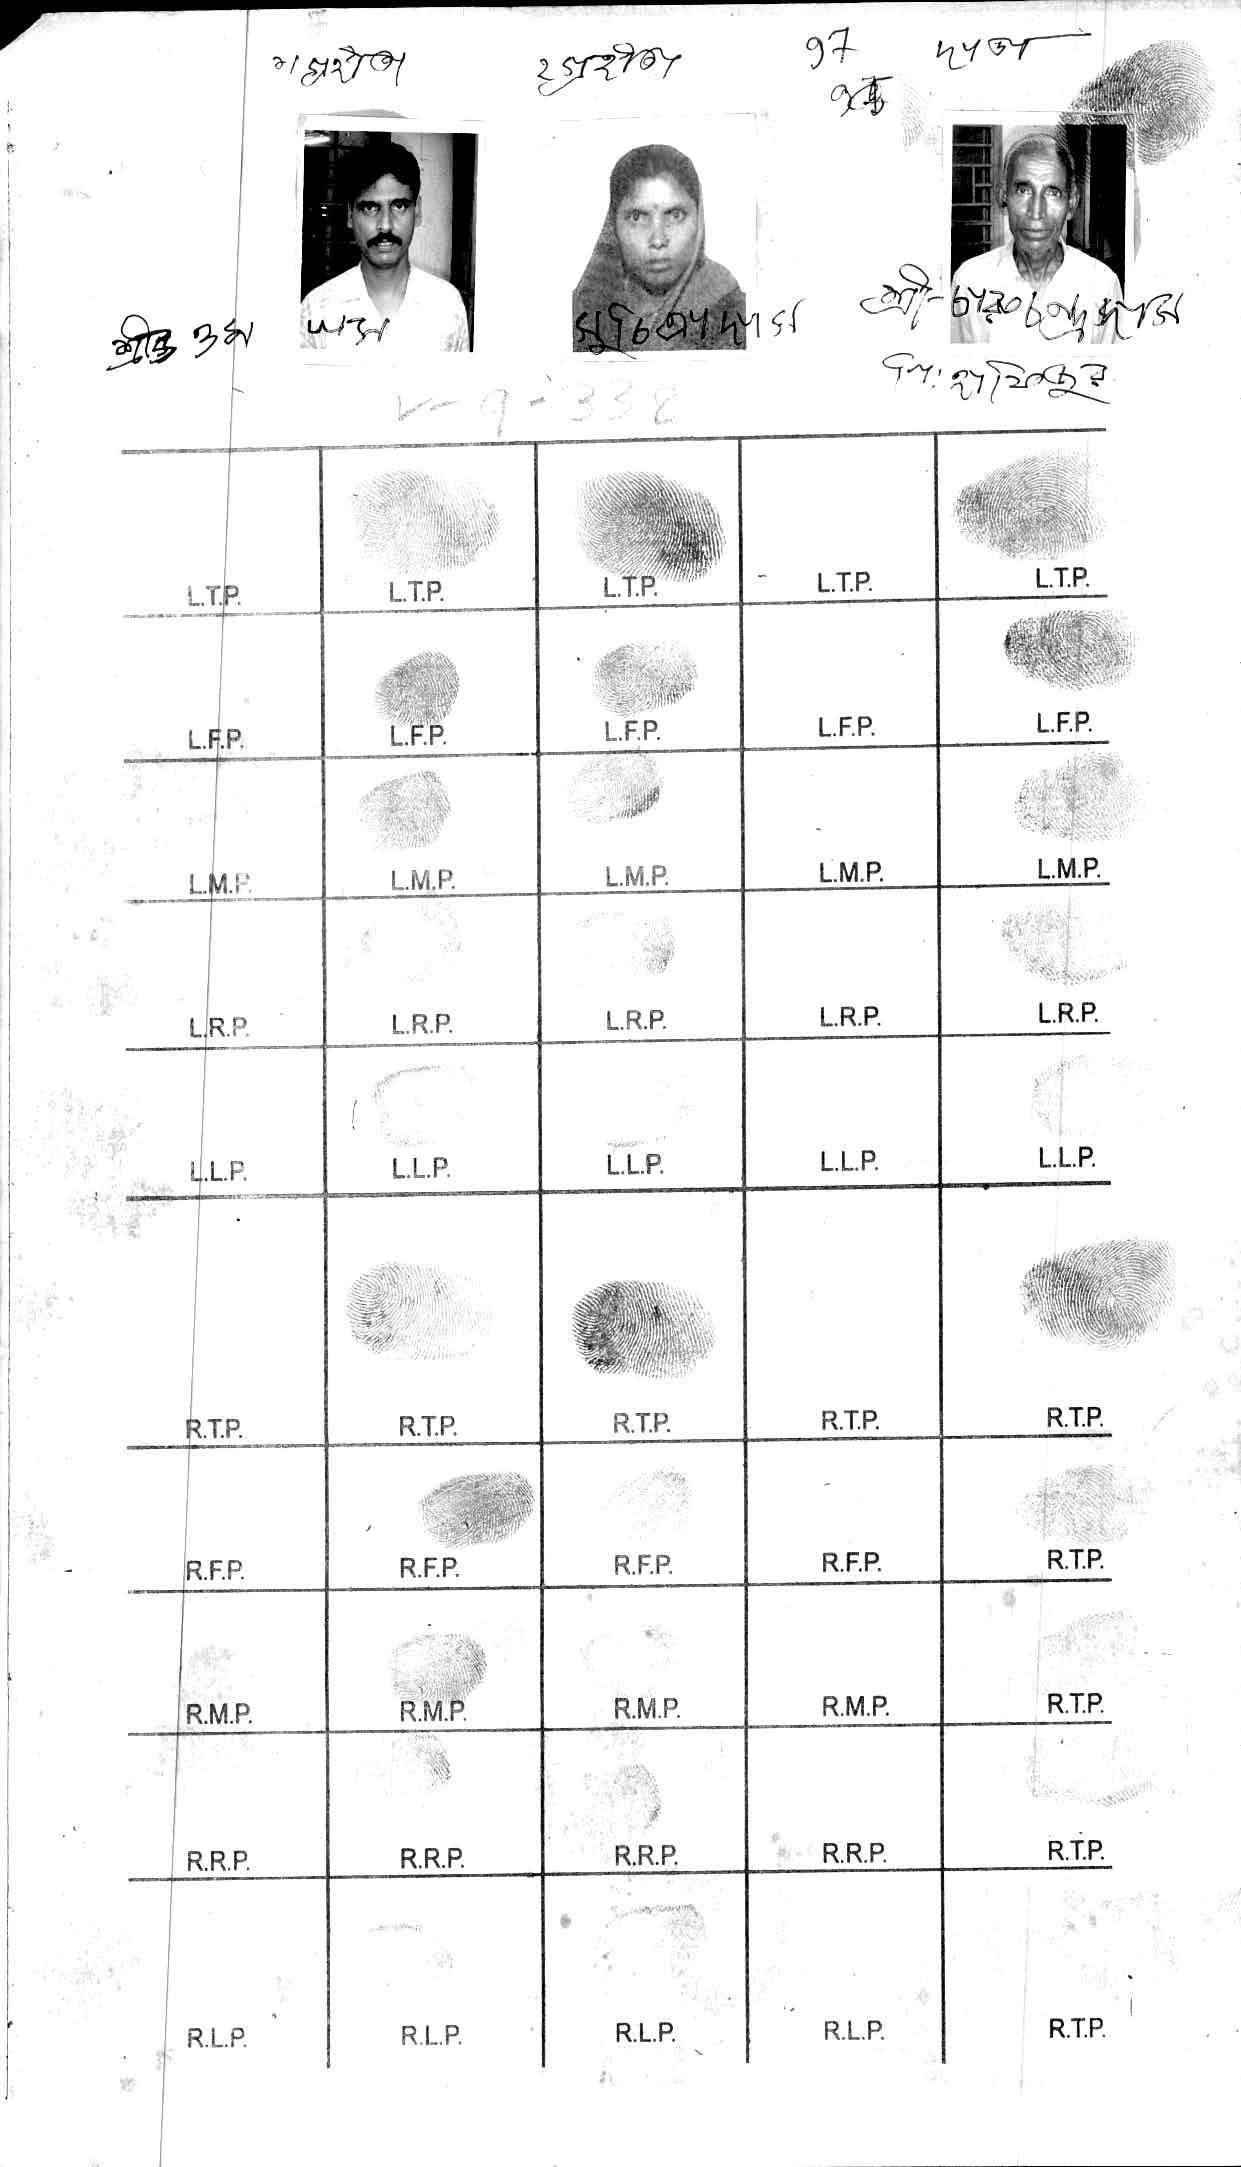 গ্রহীতা গ্রহীতা দাতা
দাস
সুচিত্রা দাস
শ্রী
L.T.P. L.T.P. L.T.P. L.T.P. L.T.P.
L.F.P. L.F.P. L.F.P. L.F.P. L.F.P.
L.M.P. L.M.P. L.M.P. L.M.P. L.M.P.
L.R.P. L.R.P. L.R.P. L.R.P. L.R.P.
L.L.P. L.L.P. L.L.P. L.L.P. L.L.P.
R.T.P. R.T.P. R.T.P. R.T.P. R.T.P.
R.F.P. R.F.P. R.F.P. R.F.P. R.T.P.
R.M.P. R.M.P. R.M.P. R.M.P. R.T.P.
R.R.P. R.R.P. R.R.P. R.R.P. R.T.P.
R.L.P. R.L.P. R.L.P. R.L.P. R.T.P.